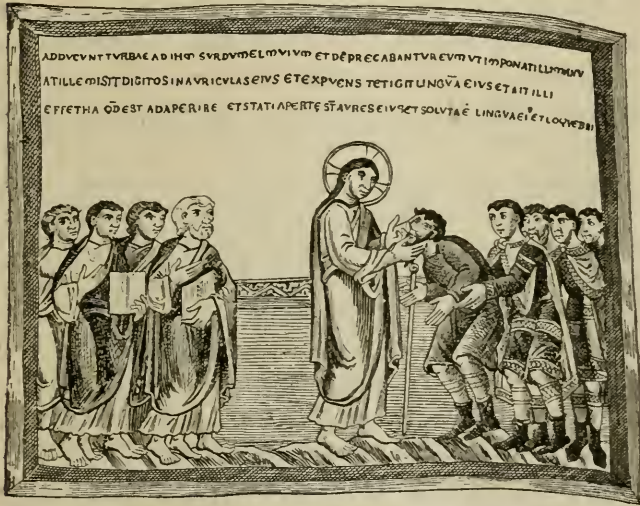 ADDVCVNT TVRBAE AD IHM SVRDVM EL MVIVM ET DEPRECABANTVR EVM VT IMPONAT ILLI MANV
AT ILLE MISIT DIGITOS IN AVRICVLAS EIVS ET EXPVENS TETIGIT LINGVĀ EIVS ET AIT ILLI
EFFETHA QD̄ EST ADAPERIRE ET STATI APERTĘ ST̄ AVRES EIVS ET SOLVTA Ē LINGVA EI' ET LOQVEBA